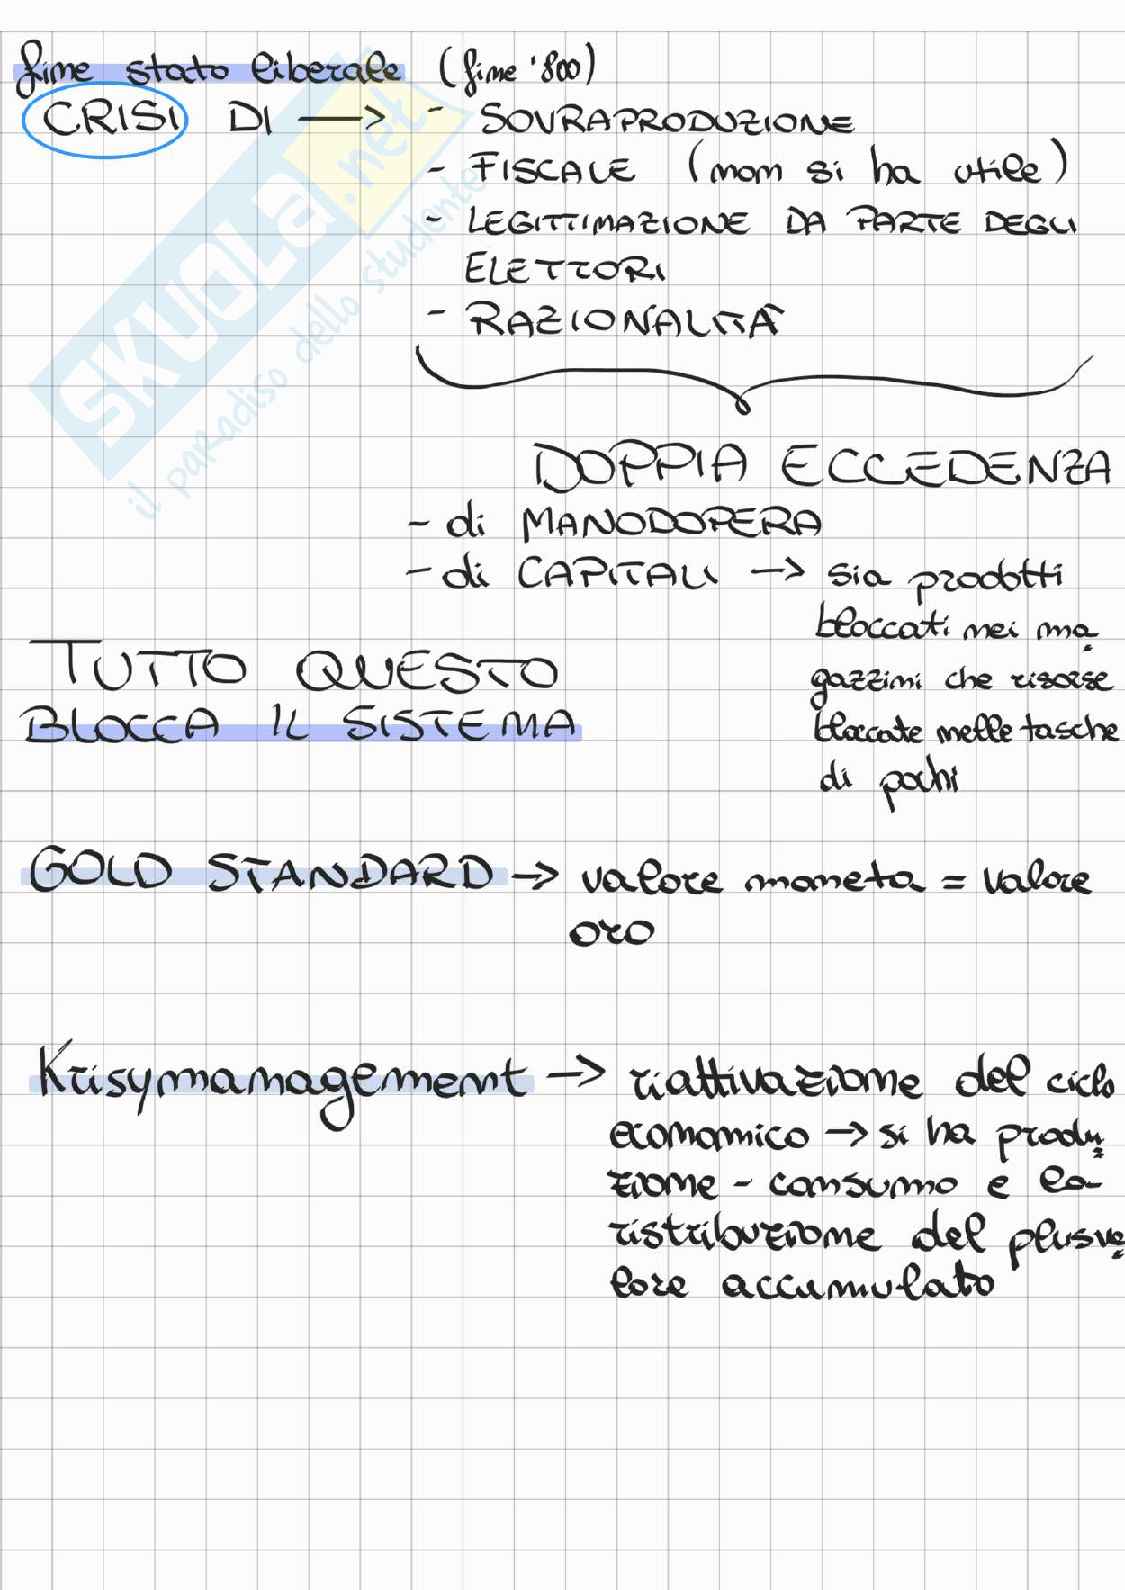 fine stato liberale (fine '800)
CRISI DI → - SOVRAPRODUZIONE
- FISCALE (non si ha utile)
- LEGITTIMAZIONE DA PARTE DEGLI
ELETTORI
- RAZIONALITÀ
DOPPIA ECCEDENZA
- di MANODOPERA
- di CAPITALI → sia prodotti
bloccati nei ma
gazzini che risorse
bloccate nelle tasche
di pochi
TUTTO QUESTO
BLOCCA IL SISTEMA
GOLD STANDARD → valore moneta = valore
oro
Krisymanagement → riattivazione del ciclo
economico → si ha produ
zione - consumo e la
ristribuzione del plusva
lore accumulato
SKUOLA.net
il paradiso dello studente